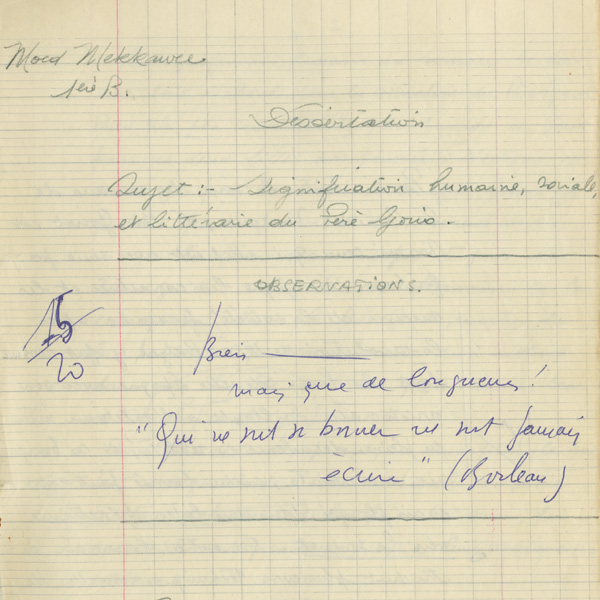 Moed Mekkawee
1ère B.
Dissertation
Sujet :- Signification humaine, sociale,
et littéraire du Père Goriot.
OBSERVATIONS.
15
20
Bien
mais que de longueurs !
"Qui ne sut se borner ne sut jamais
écrire" (Boileau)